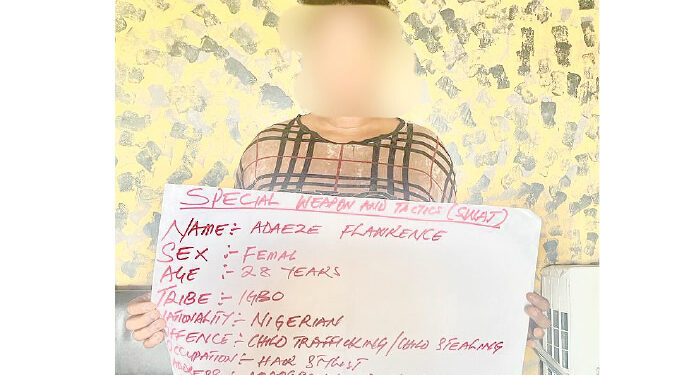 SPECIAL WEAPON AND TACTICS (SWAT)
NAME:- ADAEZE FLANRENCE
SEX :- FEMAL
AGE :- 28 YEARS
TRIBE :- IGBO
NATIONALITY :- NIGERIAN
OFFENCE :- CHILD TRAFFICKING/CHILD STEALING
OCCUPATION :- HAIR STYLIST